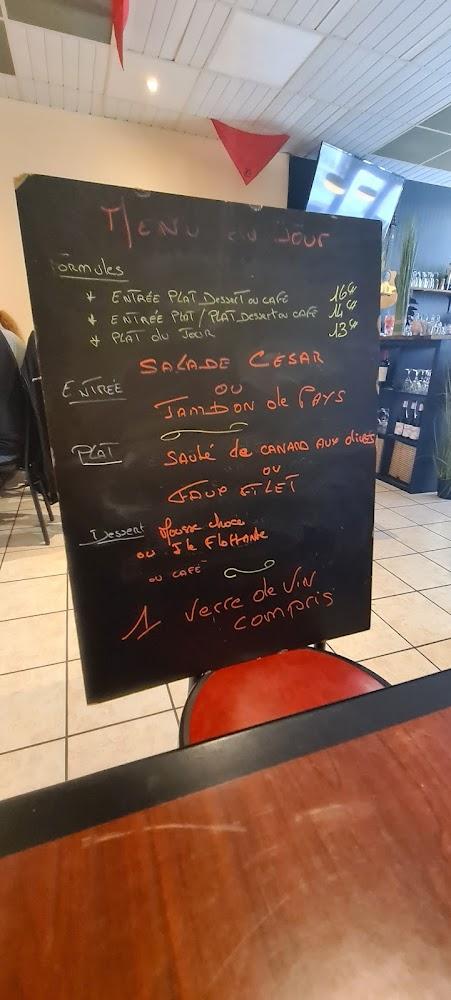 MENU du JOUR
FORMULES
* ENTRÉE PLAT DESSERT OU CAFÉ 16€
* ENTRÉE PLAT / PLAT DESSERT OU CAFÉ 14€
* PLAT DU JOUR 13€
SALADE CESAR
ENTRÉE OU
JAMBON de PAYS
PLAT SAUTÉ de CANARD AUX OLIVES
OU
FAUX FILET
Dessert Mousse choco
ou Ile Flottante
ou CAFÉ
1 verre de VIN
compris